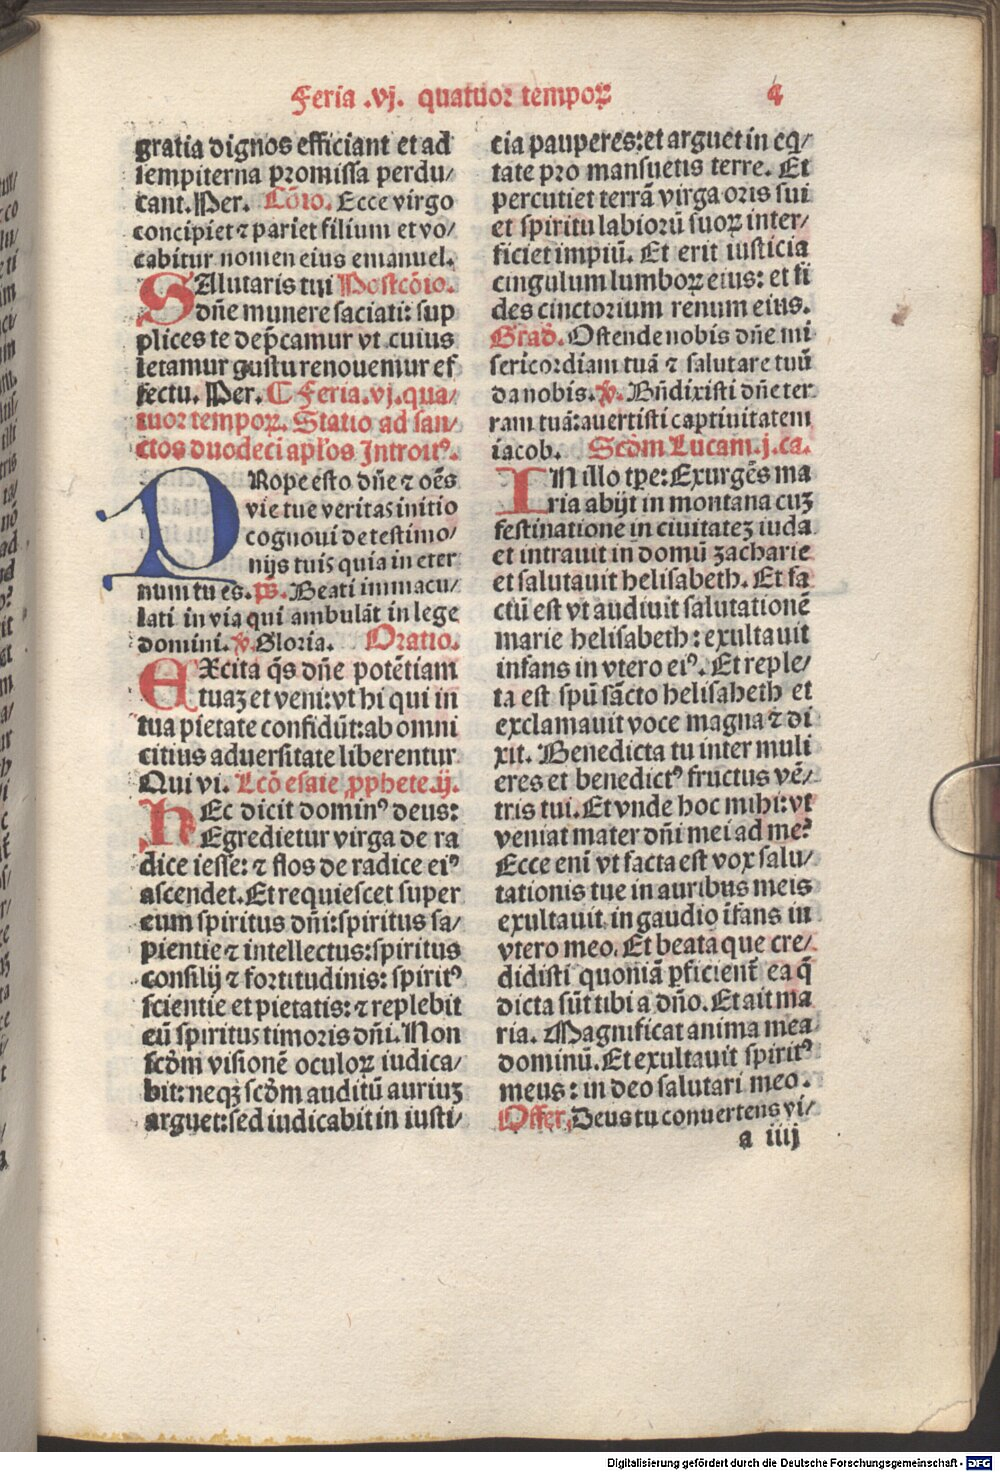 Feria .vj. quatuor tempoꝝ
4
gratia dignos efficiant et ad
sempiterna promissa perdu/
cant. Per. Cōio. Ecce virgo
concipiet ⁊ pariet filium et vo/
cabitur nomen eius emanuel.
SAlutaris tui Postcōio.
dn̄e munere saciati: sup
plices te dep̄camur vt cuius
letamur gustu renouemur ef
fectu. Per. ¶ Feria .vj. qua/
tuor tempoꝝ. Statio ad san/
ctos duodeci apl̄os Introitꝰ.
PRope esto dn̄e ⁊ oēs
vie tue veritas initio
cognoui de testimo/
nijs tuis quia in eter
num tu es. p̄s. Beati immacu/
lati in via qui ambulāt in lege
domini. ℣. Gloria. Oratio.
EXcita q̄s dn̄e potētiam
tuaꝫ et veni: vt hi qui in
tua pietate confidūt: ab omni
citius aduersitate liberentur
Qui vi. Lcō esaie ꝓphete .ij.
HEc dicit dominꝰ deus:
Egredietur virga de ra
dice iesse: ⁊ flos de radice eiꝰ
ascendet. Et requiescet super
eum spiritus dn̄i: spiritus sa/
pientie ⁊ intellectus: spiritus
consilij ⁊ fortitudinis: spiritꝰ
scientie et pietatis: ⁊ replebit
eū spiritus timoris dn̄i. Non
scd̄m visionē oculoꝝ iudica/
bit: neqꝫ scd̄m auditū auriuꝫ
arguet: sed iudicabit in iusti/
cia pauperes: et arguet in eq̄/
tate pro mansuetis terre. Et
percutiet terrā virga oris sui
et spiritu labiorū suoꝝ inter/
ficiet impiū. Et erit iusticia
cingulum lumboꝝ eius: et fi
des cinctorium renum eius.
Grad̄. Ostende nobis dn̄e mi
sericordiam tuā ⁊ salutare tuū
da nobis. ℣. Bn̄dixisti dn̄e ter
ram tuā: auertisti captiuitatem
iacob. Scd̄m Lucam .j. ca.
IN illo tp̄e: Exurgēs ma
ria abijt in montana cuꝫ
festinatione in ciuitateꝫ iuda
et intrauit in domū zacharie
et salutauit helisabeth. Et fa
ctū est vt audiuit salutationē
marie helisabeth: exultauit
infans in vtero eiꝰ. Et reple/
ta est spū sācto helisabeth et
exclamauit voce magna ⁊ di
xit. Benedicta tu inter muli
eres et benedictꝰ fructus vē/
tris tui. Et vnde hoc mihi: vt
veniat mater dn̄i mei ad me?
Ecce eni̅ vt facta est vox salu/
tationis tue in auribus meis
exultauit in gaudio īfans in
vtero meo. Et beata que cre/
didisti quoniā ꝑficient̄ ea q̄
dicta sūt tibi a dn̄o. Et ait ma
ria. Magnificat anima mea
dominū. Et exultauit spiritꝰ
meus: in deo salutari meo.
Offer. Deus tu conuertens vi/
a iiij
Digitalisierung gefördert durch die Deutsche Forschungsgemeinschaft - DFG